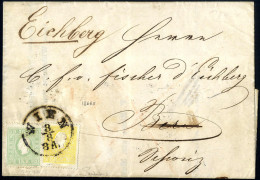 Eichberg Herren
C. f. v. fischer d'Eichberg
Bern
Schweiz
WIEN
8
8
8A.